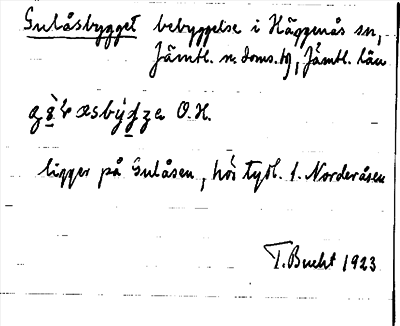 Gulåsbygget bebyggelse i Häggenås sn,
Jämtl. n. doms. tg, Jämtl. län
O.H.
ligger på Gulåsen, hör tydl. t. Norderåsen
T. Bucht 1923